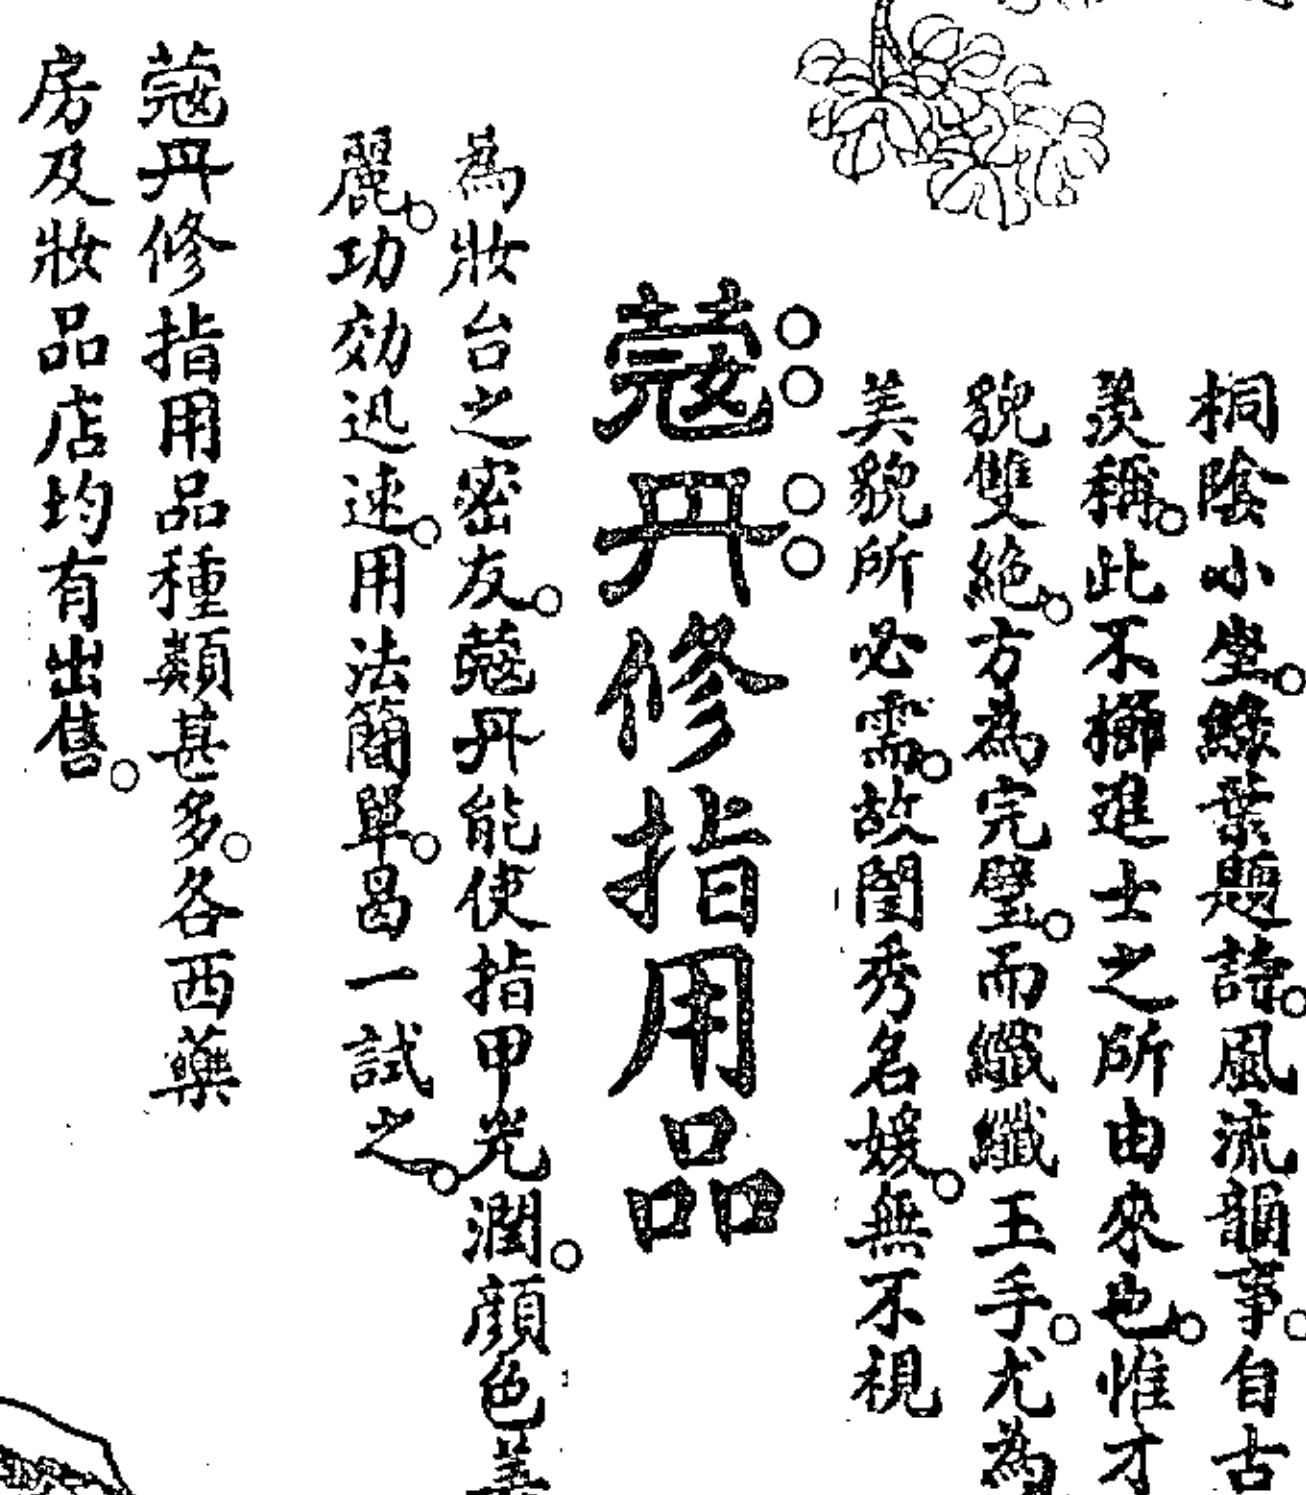 桐陰小坐。綠葉題詩。風流韻事。自古
羨稱。此不櫛進士之所由來也。惟才
貌雙絕。方為完璧。而纖纖玉手。尤為
美貌所必需。故閨秀名媛。無不視
蔻丹修指用品
為妝台之密友。蔻丹能使指甲光潤。顏色美
麗。功効迅速。用法簡單。曷一試之。
蔻丹修指用品種類甚多。各西藥
房及妝品店均有出售。